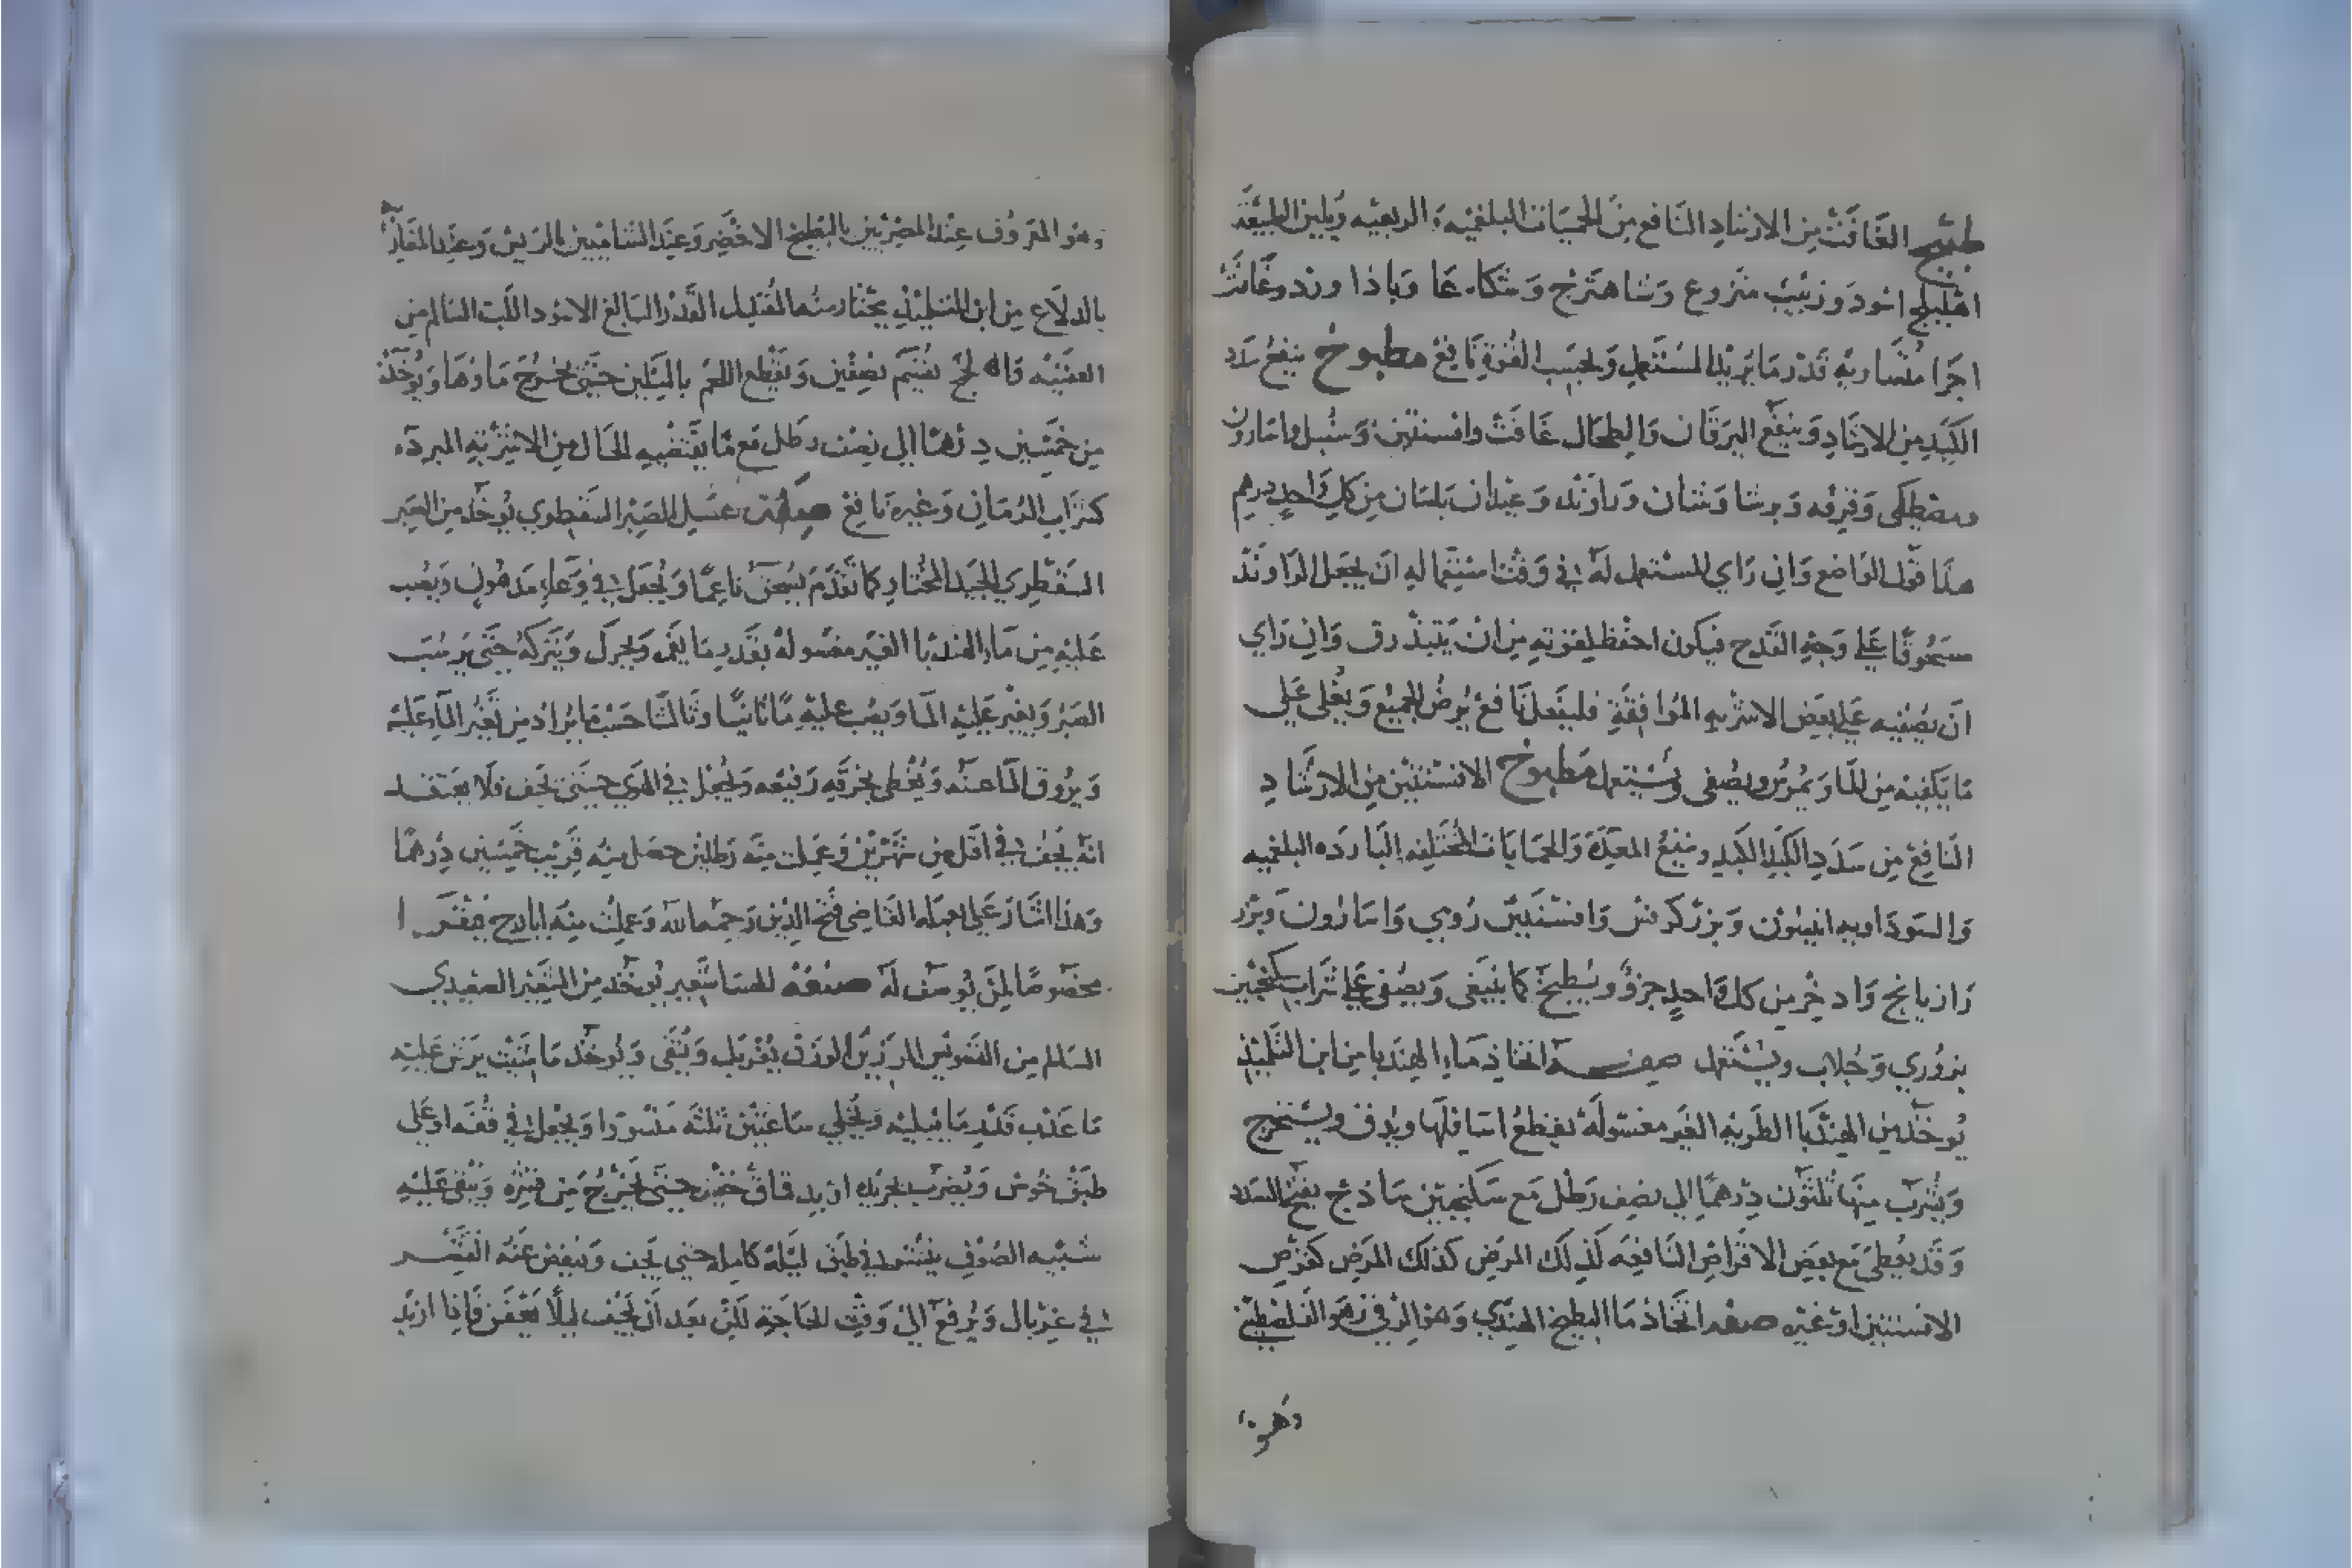 طبيخ الغافت من الارشاد النافع من الحميات البلغميه والربعيه ويلين الطبيعة
اهليلج اسود وزبيب منزوع وشاهترج وشكاعا وباذاورد وغافت
اجزا متساويه قدر ما يريد المستعمل وبحسب القوة نافع مطبوخ ينفع سدد
الكبد من الارشاد وينفع اليرقان والطحال غافت وافسنتين وسنبل واسارون
ومصطكى وقرفه وبرشاوشان وراوند وعيدان بلسان من كل واحد درهم
هذا قول الواضع وان راي المستعمل له في وقت استعماله ان يجعل الراوند
مسحوقا على وجه القدح فيكون احفظ لقوته من ان يتبذرق وان راي
ان يصفيه على بعض الاشربه الموافقة فليفعل نافع يرض الجميع ويغلى على
ما يكفيه من الما ويمرس ويصفى ويستعمل مطبوخ الافسنتين من الارشاد
النافع من سدد الكبد الكبد وينفع المعدة والحمايات المختلفه الباردة البلغميه
والسوداويه انيسون وبزر كرفس وافسنتين رومي واسارون وبزر
رازيانج واذخر من كل واحد جزو ويطبخ كما ينبغي ويصفى على شراب سكنجبين
بزوري وجلاب ويستعمل صفة اتخاذ ماء الهندبا من ابن التلميذ
يوخذ من الهندبا الطرية الغير مغسولة تقطع اسافلها ويدق ويستخرج
ويشرب منها ثلثون درهما الى نصف رطل مع سكنجبين ساذج يفتح السدد
وقد يعطى مع بعض الاقراص النافعه لذلك المرض كذلك المرض كقرص
الافسنتين او غيره صفة اتخاذ ما البطيخ الهندي وهو الرقي زهو الفلسطيني
وهو
وهو المعروف عند المصريين بالبطيخ الاخضر وعند الشاميين بالزبش وعند المغاربة
بالدلاع من ابن التلميذ يختار منها الثقيل القدر البالغ الاسود اللب السالم من
العفنيه قال لج تقسم نصفين وتقطع اللحم بالسكين حتى يخرج ماوها ويوخذ
من خمسين درهما الى نصف رطل مع ما يقتضيه الحال من الاشربة المبرده
كشراب الرمان وغيره نافع صفة غسل الصبر السقطري يوخذ من الصبر
السقطري الجيد المختار كما تقدم يسحق ناعما ويجعل في وعاء مدهون ويصب
عليه من ماء الهندبا الغير مغسولة بقدر ما يغمر ويحرك ويتركه حتى يرسب
الصبر ويغير عليه الما ويصب عليه ما ثانيا وثالثا حسب ما يراد من تغير الماء عليه
ويروق الما عنه ويغطى بخرقه رفيعه ويجعل في الهوى حتى يجف فلا يعتقد
انه يجف في اقل من شهرين وعملت منه رطلين حصل منه قريب خمسين درهما
وهذا اشار علي بعمله القاضي فتح الدين رحمه الله وعملت منه ايارج فيقرا
مخصوصا لمن يوصف له صفة للسا شعير يوخذ من الشعير الصعيدي
السالم من التسويس الرزين الوزن يغربل وينقى ويوخذ ما شيت يرش عليه
ما عذب قدر ما يبليه ويخلي ساعتين ثلثه مستورا ويجعل في قفه او على
طبق خوص ويضرب بجريد ان بدقاق خفيف حتى يخرج من قشره ويبقى عليه
شبيه الصوف ينشر في طبق ليلة كامله حتى يجف وينفض عنه القشر
في غربال ويرفع الى وقت الحاجه لكن بعد ان يجف ليلا يعفن فاذا اريد